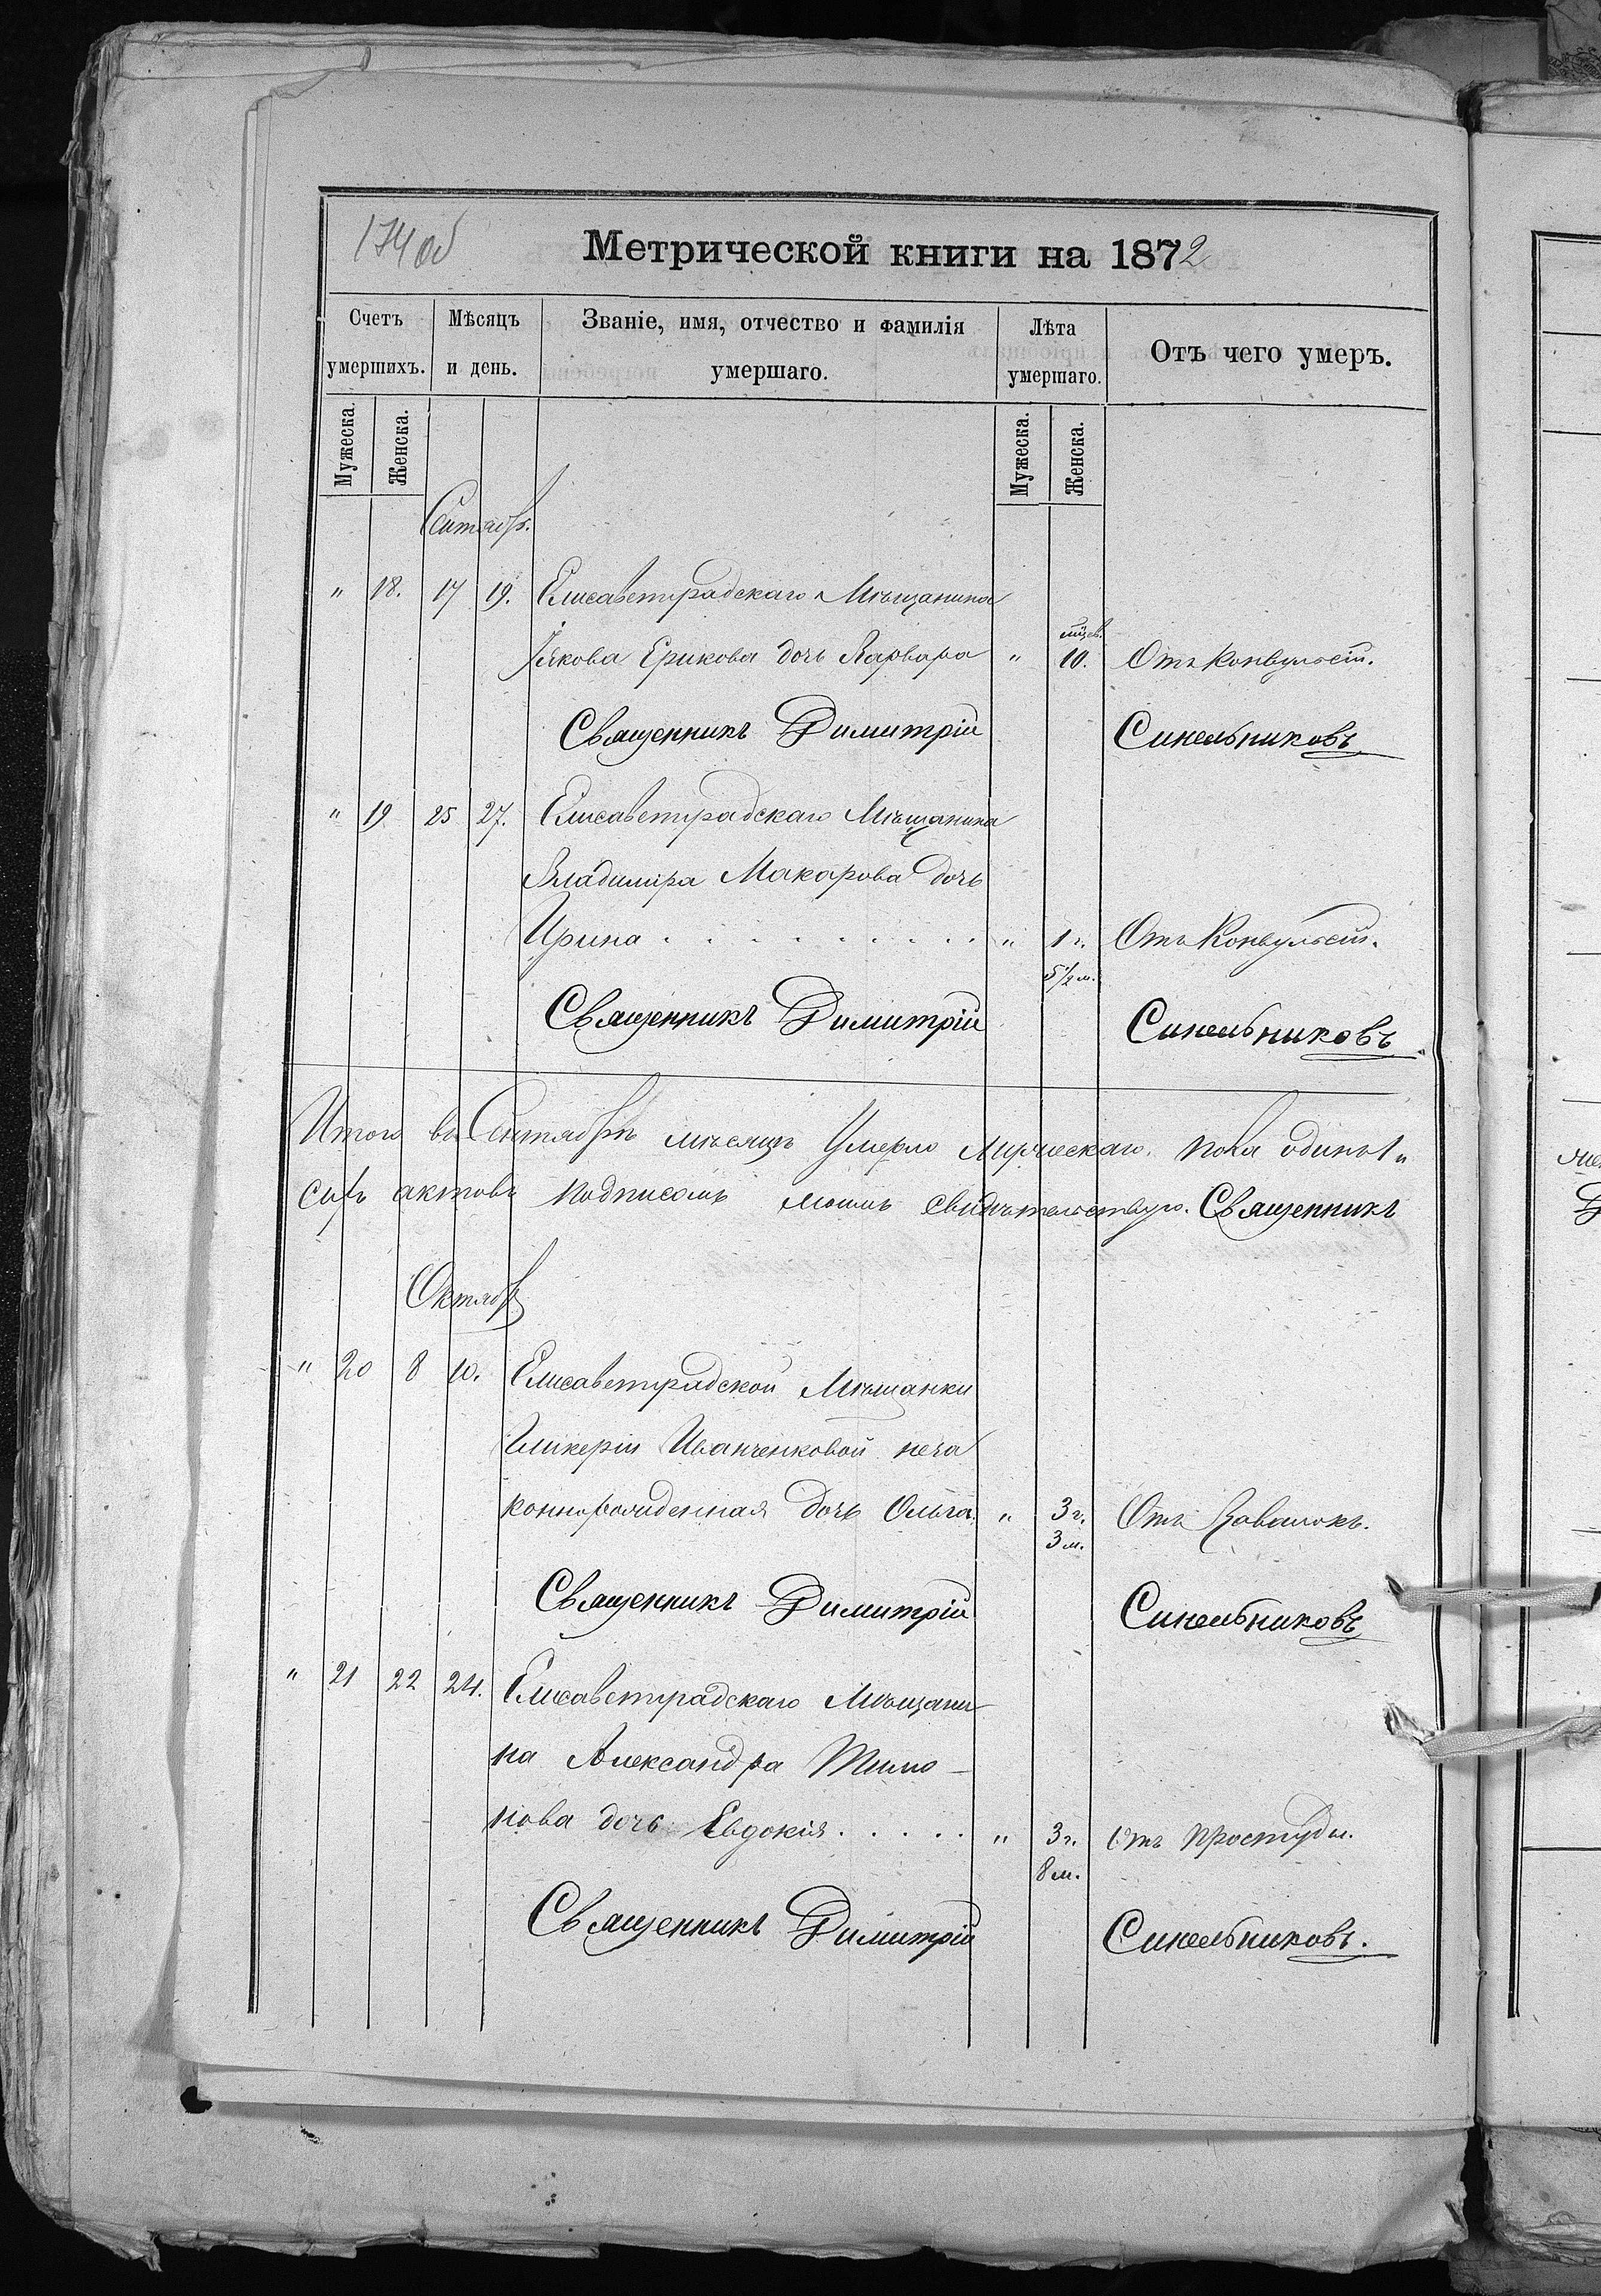 174 об
Метрической книги на 1872
Счетъ умершихъ.
Мѣсяцъ и день.
Званіе, имя, отчество и фамилія умершаго.
Лѣта умершаго.
Отъ чего умеръ.
Мужеска. Женска. Мужеска. Женска.
Сентябрь.
" 18. 17 19. Елисаветградскаго Мѣщанина
Іякова Ерикова дочь Варвара " мѣсев. 10. Отъ Конвульсіи.
Священникъ Димитрій Синельниковъ
" 19 25 27. Елисаветградскаго Мѣщанина
Владиміра Макарова дочь
Ирина . . . . . . . . . " 1 г. Отъ Конвульсіи.
5 1/2 м.
Священникъ Димитрій Синельниковъ
Итого въ Сентябрѣ мѣсяцѣ Умерло Мужескаго пола одинъ 1 "
актовъ подписомъ моимъ свидѣтельствую. Священникъ
Октябрь
" 20 8 10. Елисаветградской Мѣщанки
Гликеріи Иванченковой неза
коннорожденная дочь Ольга. " 3 г. Отъ
3 м.
Священникъ Димитрій Синельниковъ
" 21 22 24. Елисаветградскаго Мѣщани
на Александра Тимо-
нова дочь Евдокія . . . . . " 3 г. Отъ простуды.
8 м.
Священникъ Димитрій Синельниковъ.